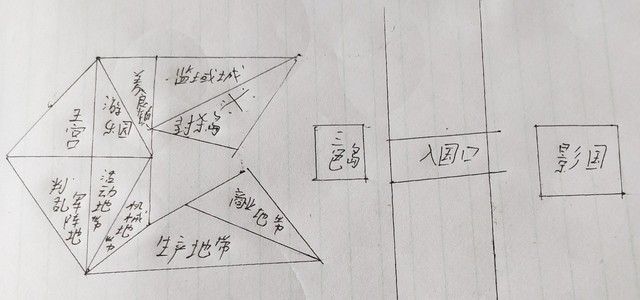 养良镇
监域城
游乐园
王宫
封杀岛
三色岛
入国口
影国
判乱军阵地
活动地带
机械地带
商业地带
生产地带